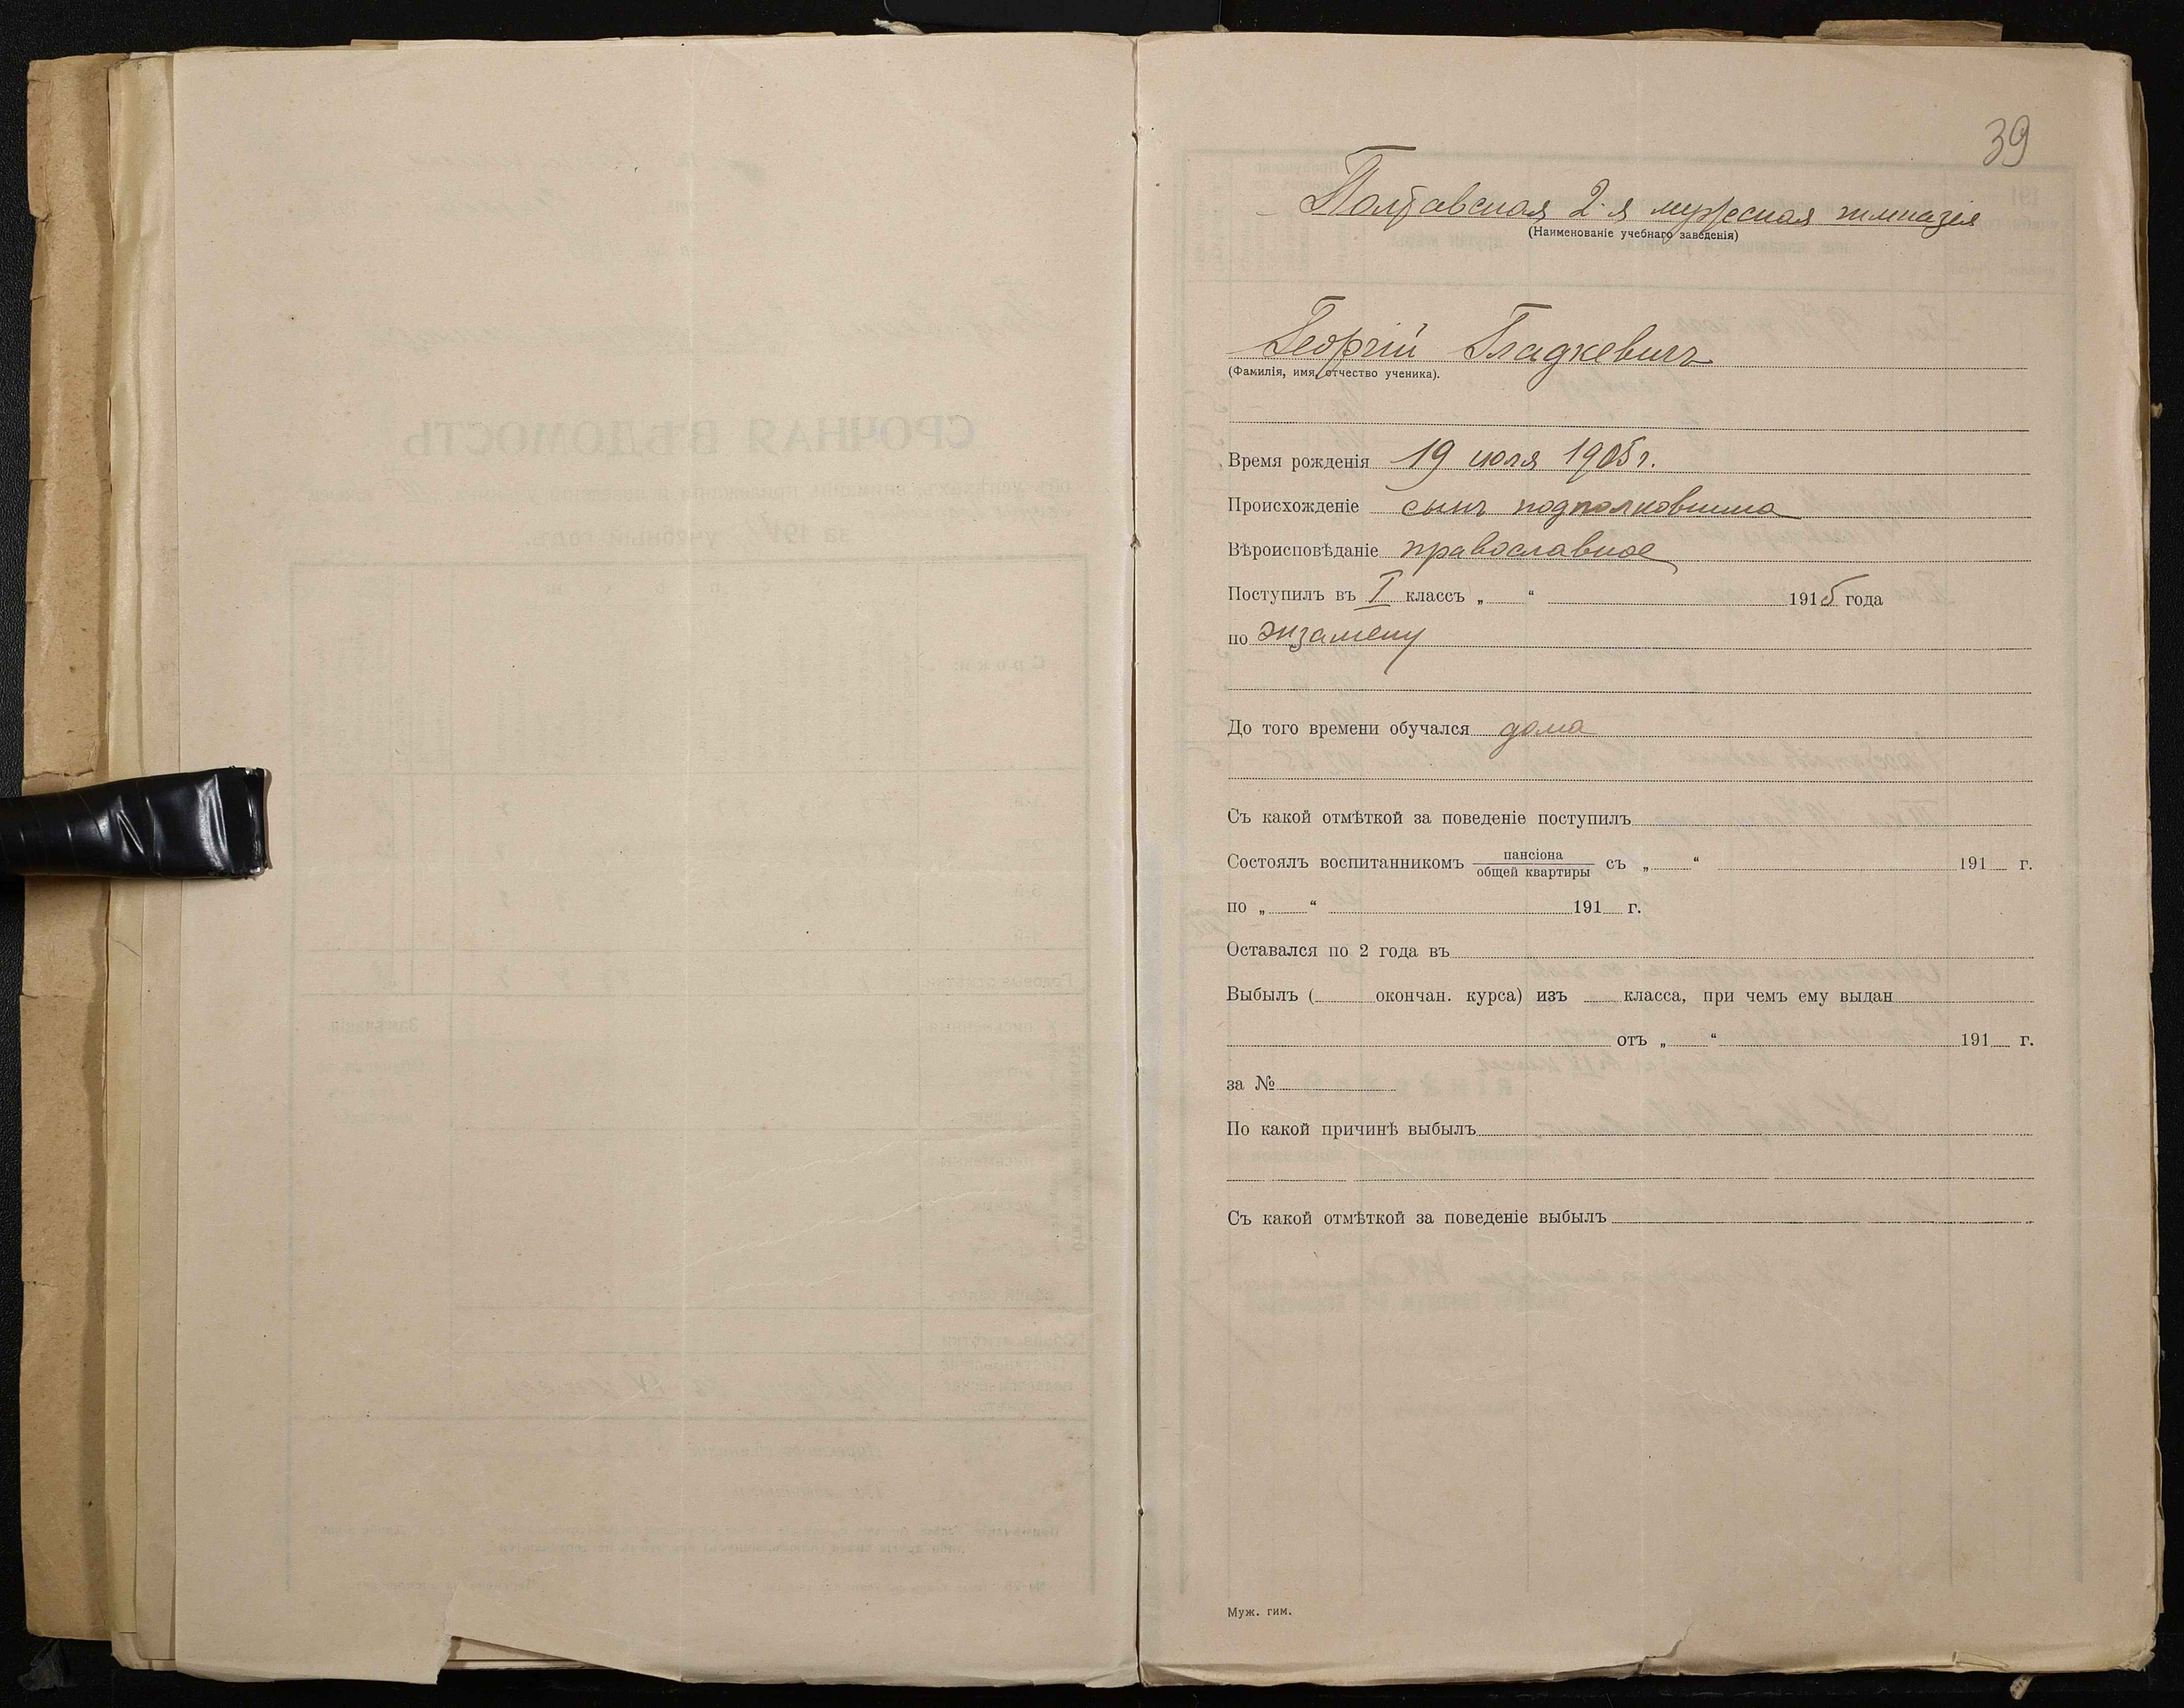 39
Полтавская 2-я мужеская гимназія
(Наименованіе учебнаго заведенія)
Георгій Гладкевичъ
(Фамилія, имя, отчество ученика).
Время рожденія 19 іюля 1905 г.
Происхожденіе сынъ подполковника
Вѣроисповѣданіе православное
Поступилъ въ I классъ „ “ 1915 года
по экзамену
До того времени обучался дома
Съ какой отмѣткой за поведеніе поступилъ
Состоялъ воспитанникомъ пансіона / общей квартиры съ „ “ 191 г.
по „ “ 191 г.
Оставался по 2 года въ
Выбылъ ( окончан. курса) изъ класса, при чемъ ему выдан
отъ „ “ 191 г.
за №
По какой причинѣ выбылъ
Съ какой отмѣткой за поведеніе выбылъ
Муж. гим.
СРОЧНАЯ ВѢДОМОСТЬ